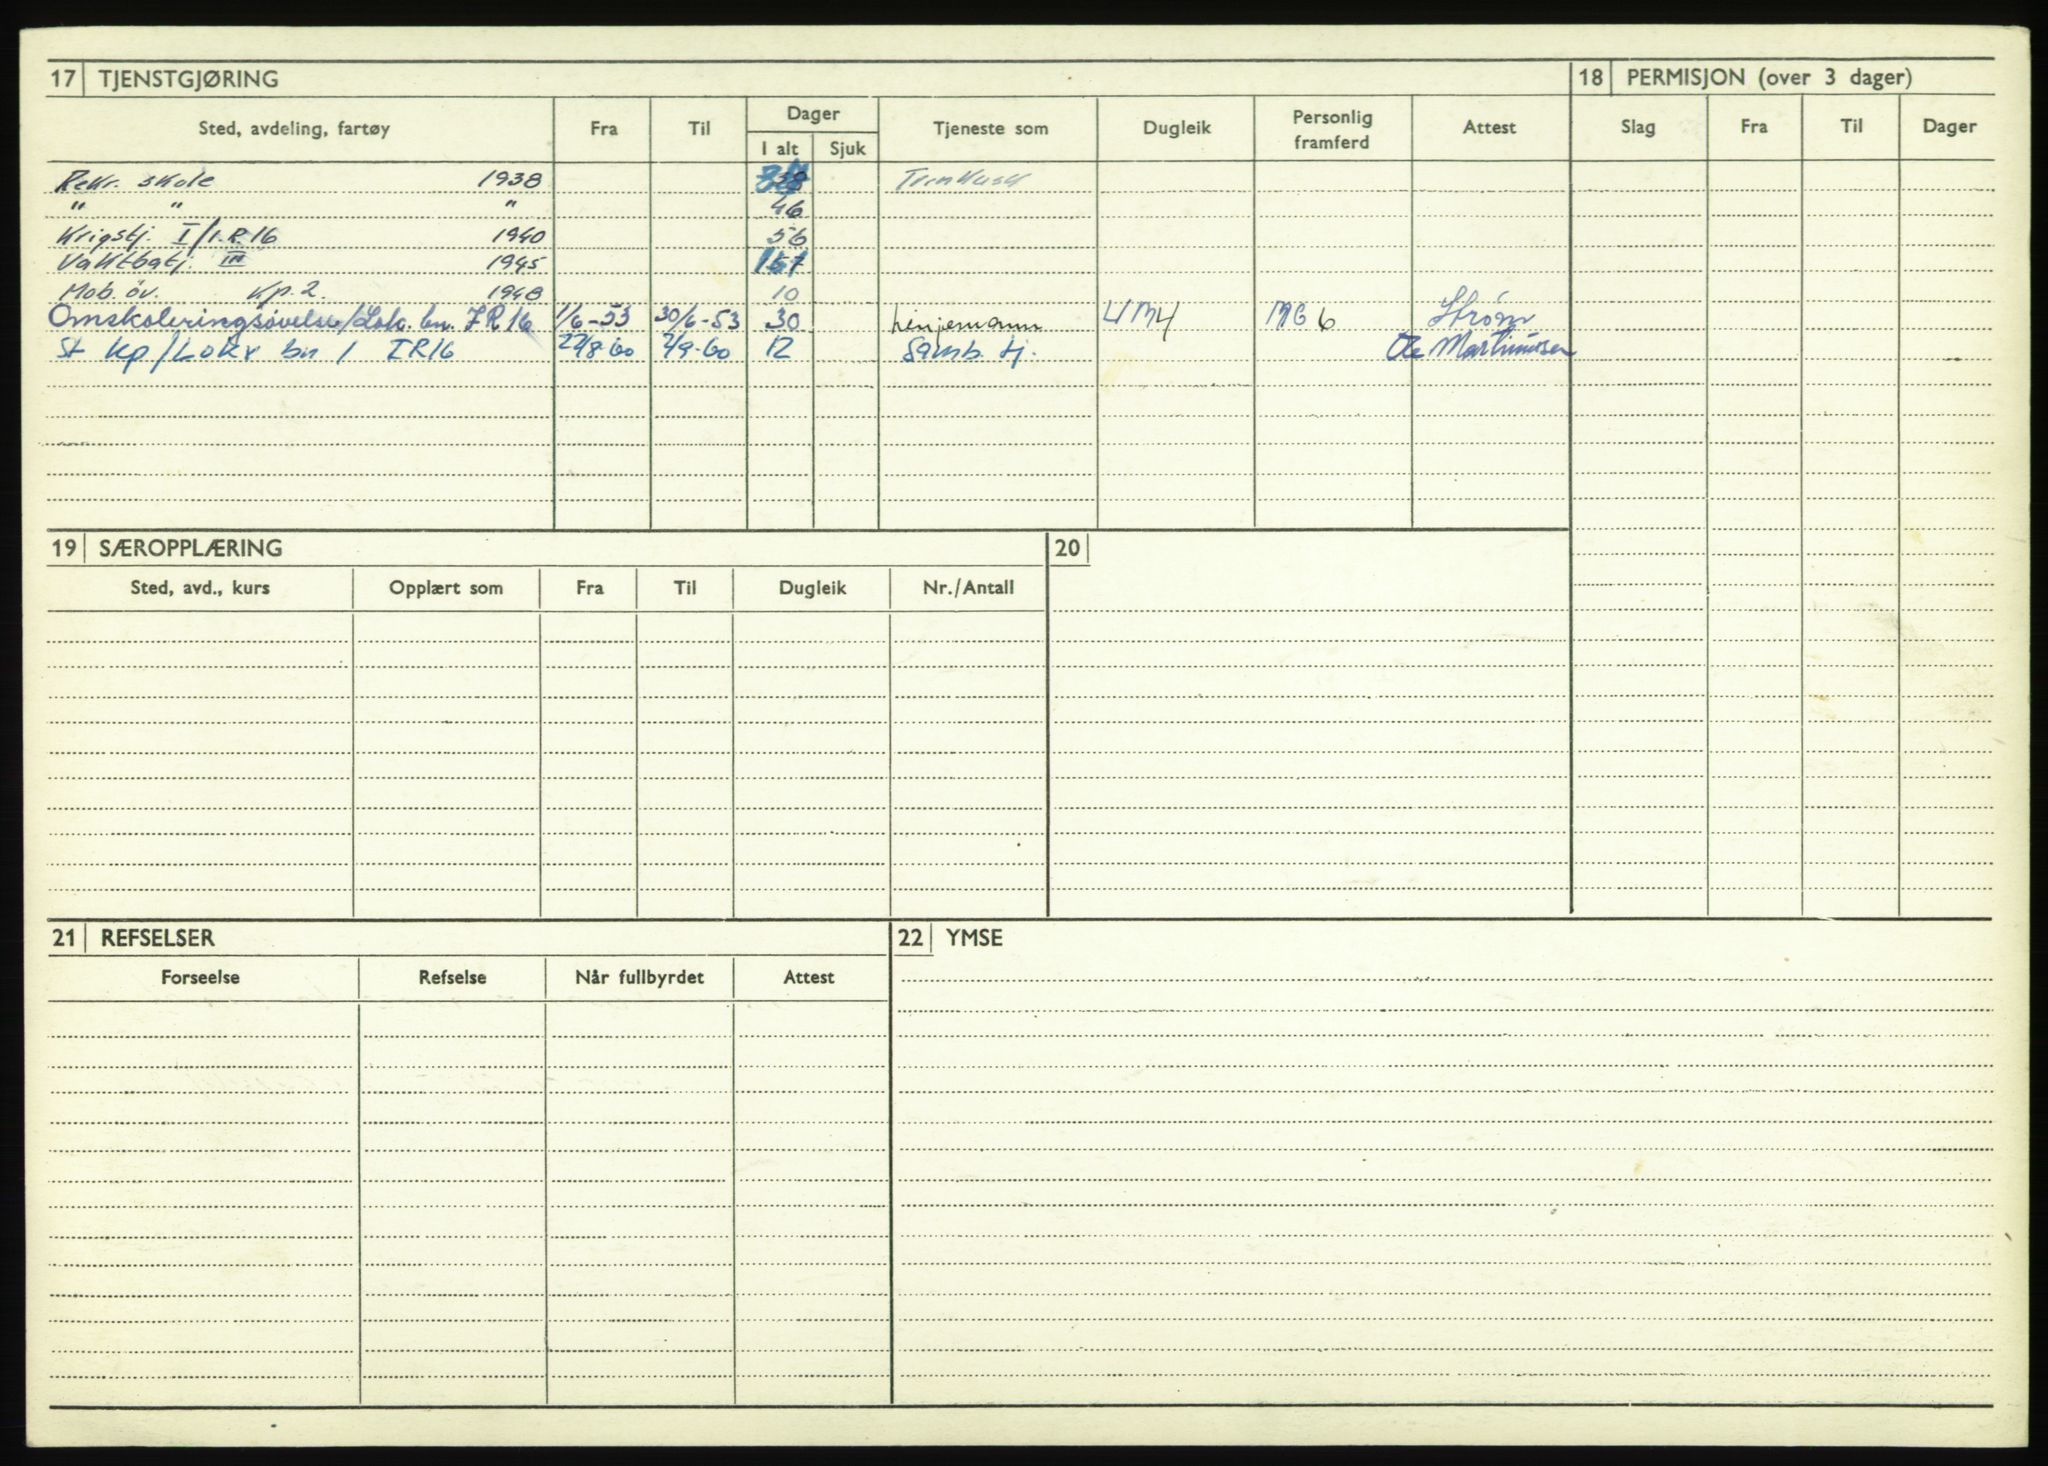 17 TJENSTGJØRING
18 PERMISJON (over 3 dager)
Sted, avdeling, fartøy Fra Til Dager Tjeneste som Dugleik Personlig framferd Attest Slag Fra Til Dager
I alt Sjuk
Rekr. skole 1938
" " " 46
Krigstj. I/I.R.16 1940 56
Vaktbatj. III 1945
Mob. öv. Kp. 2. 1948 10
Omskoleringsøvelse/Lok. bn. IR16 1/6-53 30/6-53 30 Linjemann 4 M 4 MG 6 Strøm
St Kp/Lokv bn 1 IR16 22/8-60 2/9-60 12 Samb. tj. Ole Martinussen
19 SÆROPPLÆRING
20
Sted, avd., kurs Opplært som Fra Til Dugleik Nr./Antall
21 REFSELSER
22 YMSE
Forseelse Refselse Når fullbyrdet Attest